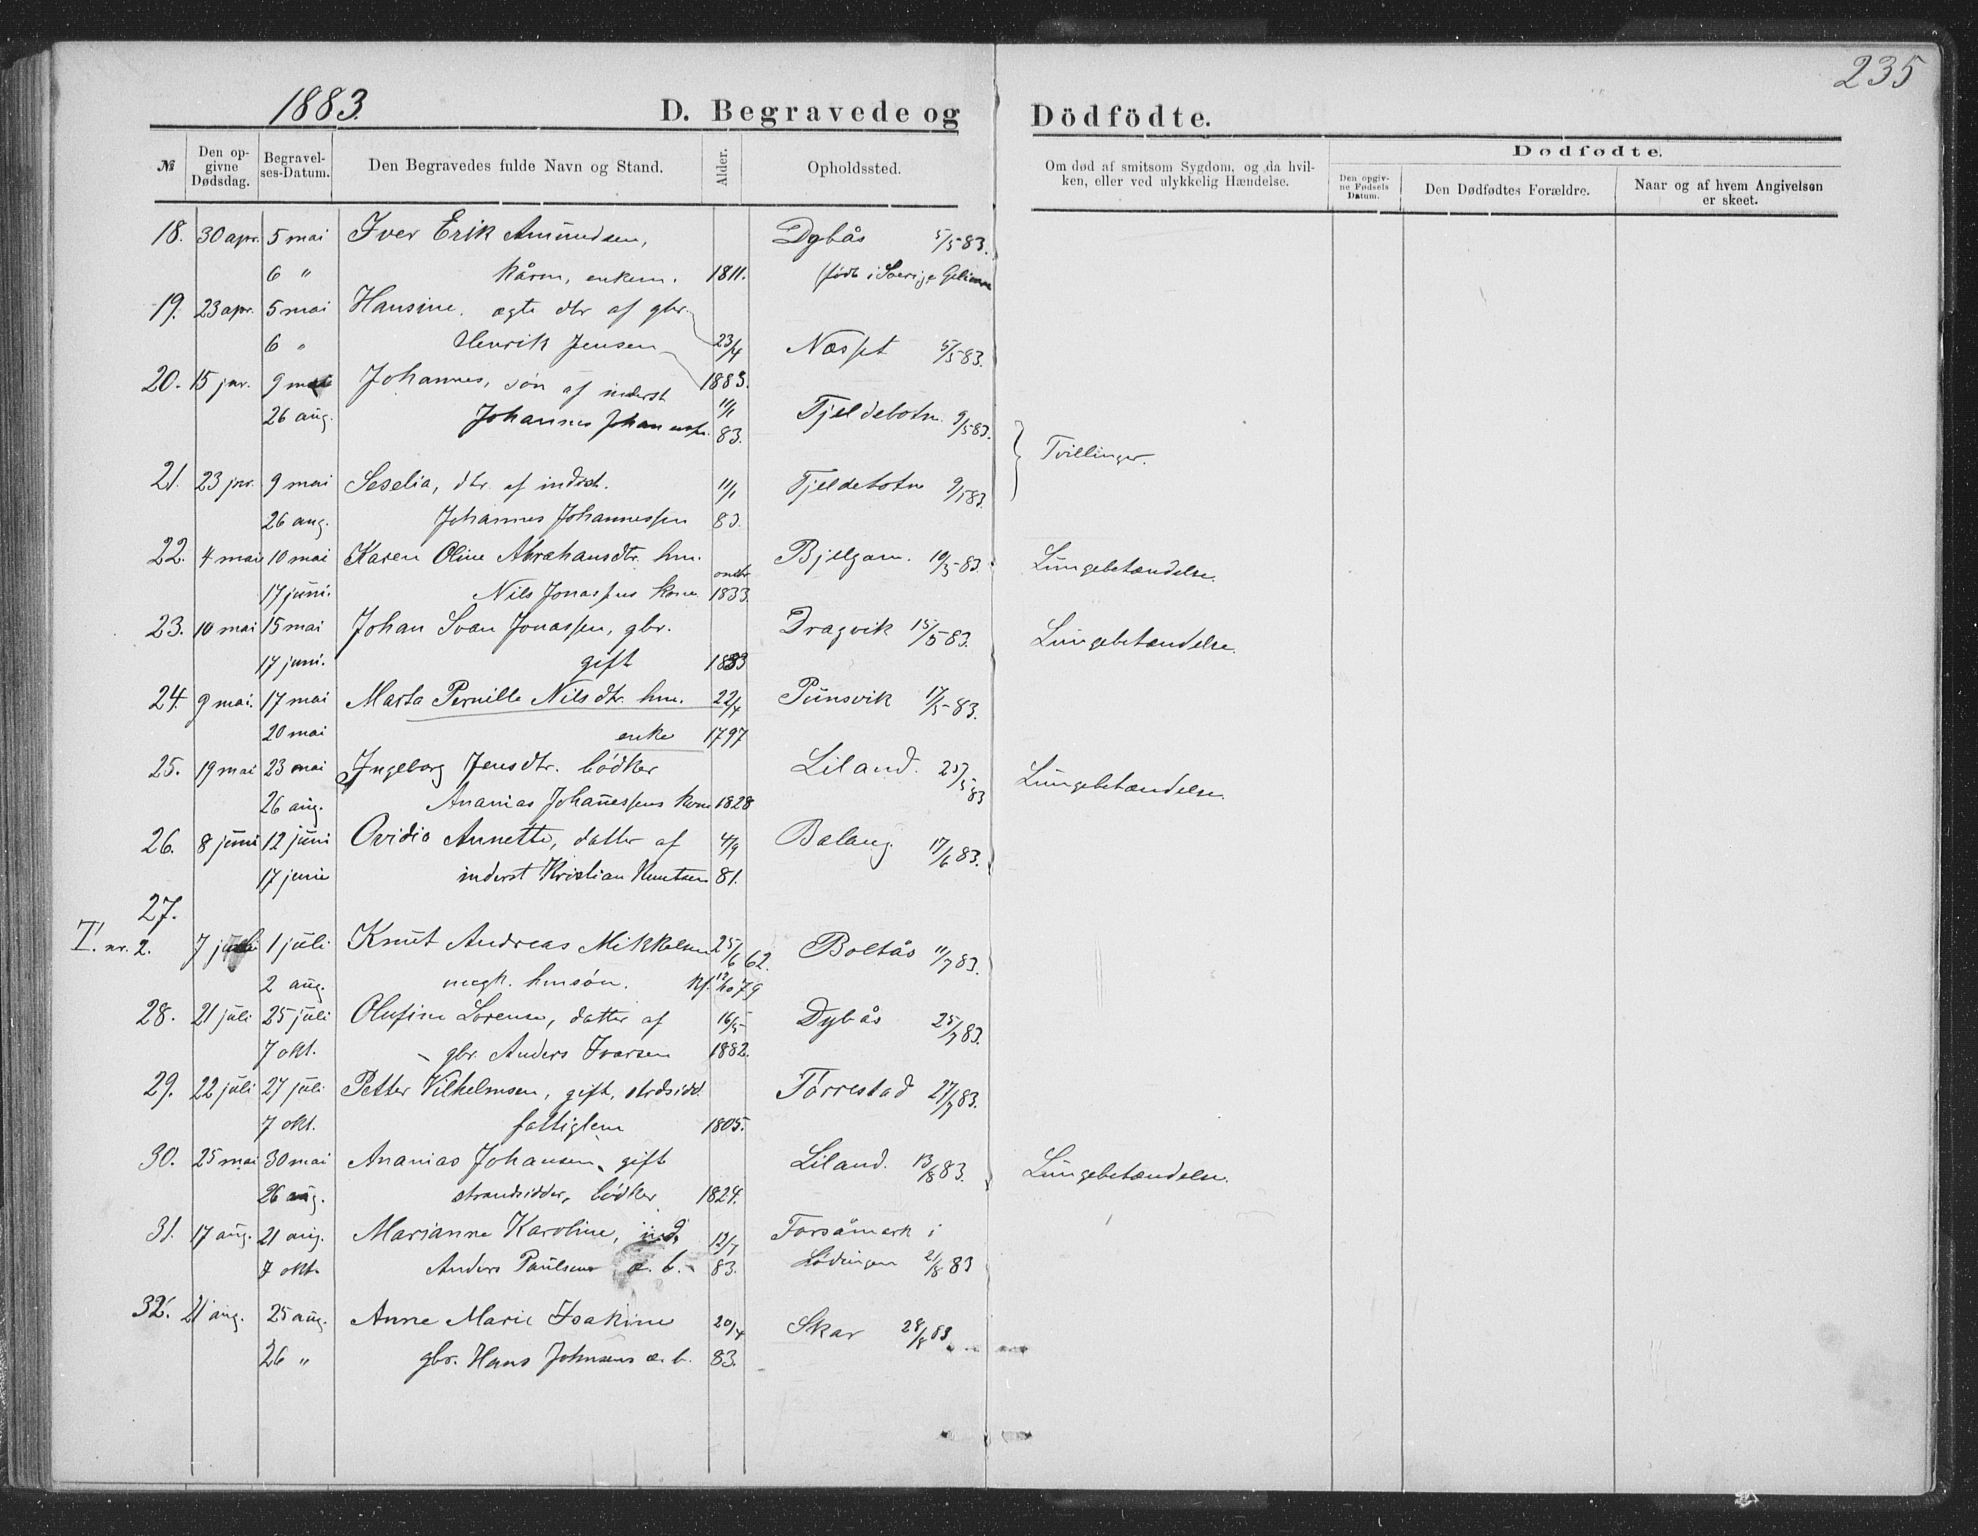 235
1883.
D. Begravede og Dödfödte.
№ Den opgivne Dødsdag. Begravelses-Datum. Den Begravedes fulde Navn og Stand. Alder. Opholdssted. Om død af smitsom Sygdom, og da hvilken, eller ved ulykkelig Hændelse. Dødfødte.
Den opgivne Fødsels Datum. Den Dødfødtes Forældre. Naar og af hvem Angivelsen er skeet.
18. 30 apr. 5 mai Iver Erik Amundsen, Dybås 5/5 83.
6 " kårm, enkem. 1811. (født i Sverige
19. 23 apr. 5 mai Hansine, ægte dtr af gbr.
6 " Henrik Jensen 23/4 1883. Næsset 5/5 83.
20. 15 jnr. 9 mai Johannes, søn af inderst 11/1
26 aug. Johannes Johannessen 83. Tjeldebotn 9/5 83.
Tvillinger.
21. 23 jnr. 9 mai Seselia, dtr. af indst. 11/1 Tjeldebotn 9/5 83.
26 aug. Johannes Johannessen 83.
22. 4 mai 10 mai Karen Oline Abrahamsdtr. hm. Bjelgam. 10/5 83. Lungebetændelse.
17 juni. Nils Jonassens kone omtr 1833.
23. 10 mai 15 mai Johan Svan Jonassen, gbr. Dragvik 15/5 83. Lungebetændelse.
17 juni. gift 1833
24. 9 mai. 17 mai Marta Pernille Nilsdtr. hm. 22/4 Punsvik 17/5 83.
20 mai enke 1797
25. 19 mai 23 mai Ingeborg Jensdtr. bødker Liland. 23/5 83 Lungebetændelse.
26 aug. Ananias Johanessens kone 1828
26. 8 juni 12 juni Ovidia Annette, datter af 4/9 Balang. 17/6 83.
17 junie inderst Kristian Knutsen 81.
27.
T. nr. 2. 7 juli 1 juli Knut Andreas Mikkelsen 25/6 62. Boltås 11/7 83.
2 aug. ungk. hmsøn. kf. 12/10 79
28. 21 juli 25 juli Olufine Lorense, datter af 16/5 Dybås 25/7 83.
7 okt. gbr. Anders Ivarsen 1882.
29. 22 juli 27 juli Petter Vilhelmsen, gift, strdsidd. Tørrestad 27/7 83.
7 okt. fattiglem 1805.
30. 25 mai 30 mai Ananias Johansen, gift Liland. 13/8 83. Lungebetændelse.
26 aug. strandsidder, bødker 1824.
31. 17 aug. 21 aug. Marianne Karoline, ind. 12/7 Forsåmark i
7 okt. Anders Paulsens æ. b. 83. Lødingen 21/8 83
32. 21 aug. 25 aug. Anne Marie Joakine 20/4 Skar 28/8 83
26 " gbr. Hans Johnsens æ. b. 83.